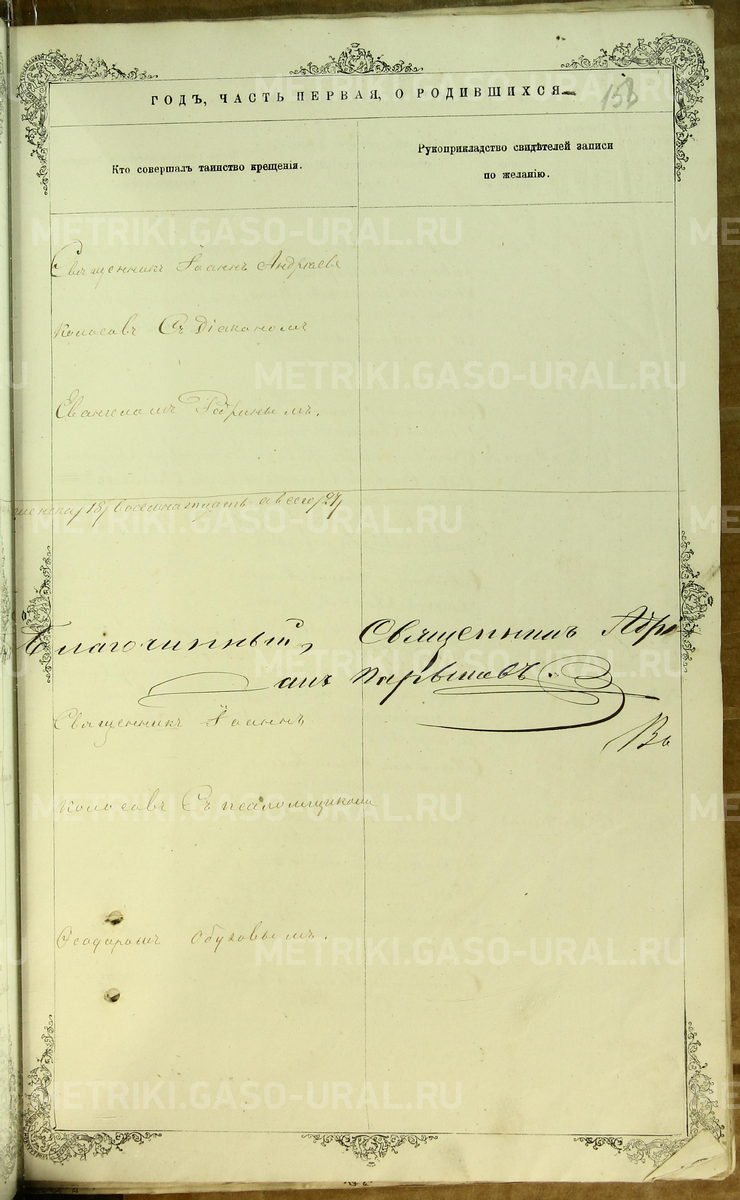 ГОДЪ, ЧАСТЬ ПЕРВАЯ, О РОДИВШИХСЯ
158
Кто совершалъ таинство крещенія.
Рукоприкладство свидѣтелей записи
по желанію.
Священникъ Іоаннъ Андреевъ
Колосовъ Съ Діакономъ
18) восемнадцать а всего 27)
Благочинный, Священникъ
Священникъ Іоаннъ
Колосовъ Съ псаломщикомъ
Ѳеодоромъ Обуховымъ.
METRIKI.GASO-URAL.RU